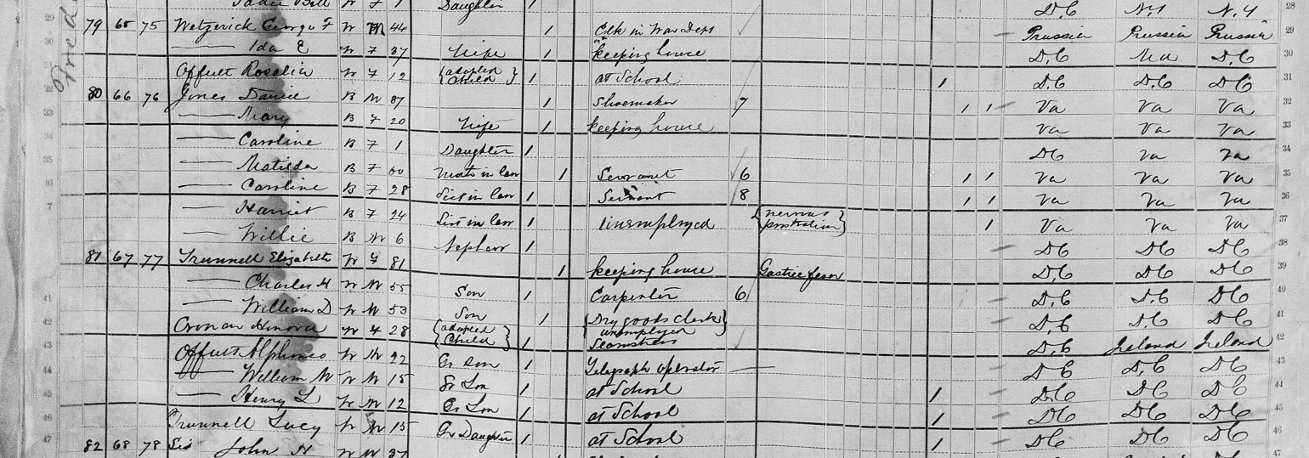 Daughter 1 D.C N.Y N.Y 28
29 79 65 75 Wetzerick George F W M 44 1 Clk in War Dept Prussia Prussia Prussia 29
30 Ida E W F 37 Wife 1 keeping house D.C Md D.C 30
Offutt Rosalia W F 12 {adopted Child} 1 at School 1 D.C D.C D.C 31
32 80 66 76 Jones Daniel B M 37 1 Shoemaker 7 1 1 Va Va Va 32
33 Mary B F 20 Wife 1 keeping house Va Va Va 33
Caroline B F 1 Daughter 1 DC Va Va 34
35 Matilda B F 60 in law 1 Servant 6 1 1 Va Va Va 35
Caroline B F 28 Sist in law 1 Servant 8 1 1 Va Va Va 36
7 Harriet B F 24 Sist in law 1 Unemployed {nervous prostration} 1 Va Va Va 37
Willie B M 6 Nephew 1 DC DC DC 38
81 67 77 Trunnell Elizabeth W F 81 1 keeping house Gastric fever DC DC DC 39
Charles H W M 55 Son 1 Carpenter 6 DC D.C DC 40
41 William D W M 53 Son 1 {Dry goods clerk unemployed} D.C D.C DC 41
42 Cronan W F 28 {adopted Child} 1 Seamstress D.C Ireland Ireland 42
43 Offutt Alphonso W M 22 Gr Son 1 Telegraph operator DC D.C DC 43
44 William W W M 15 Gr Son 1 at School 1 DC DC DC 44
45 Henry L W M 12 Gr Son 1 at School 1 DC DC DC 45
46 Trunnell Lucy W 15 Gr Daughter 1 at School 1 DC DC DC 46
47 82 68 78 John H W M 37 47